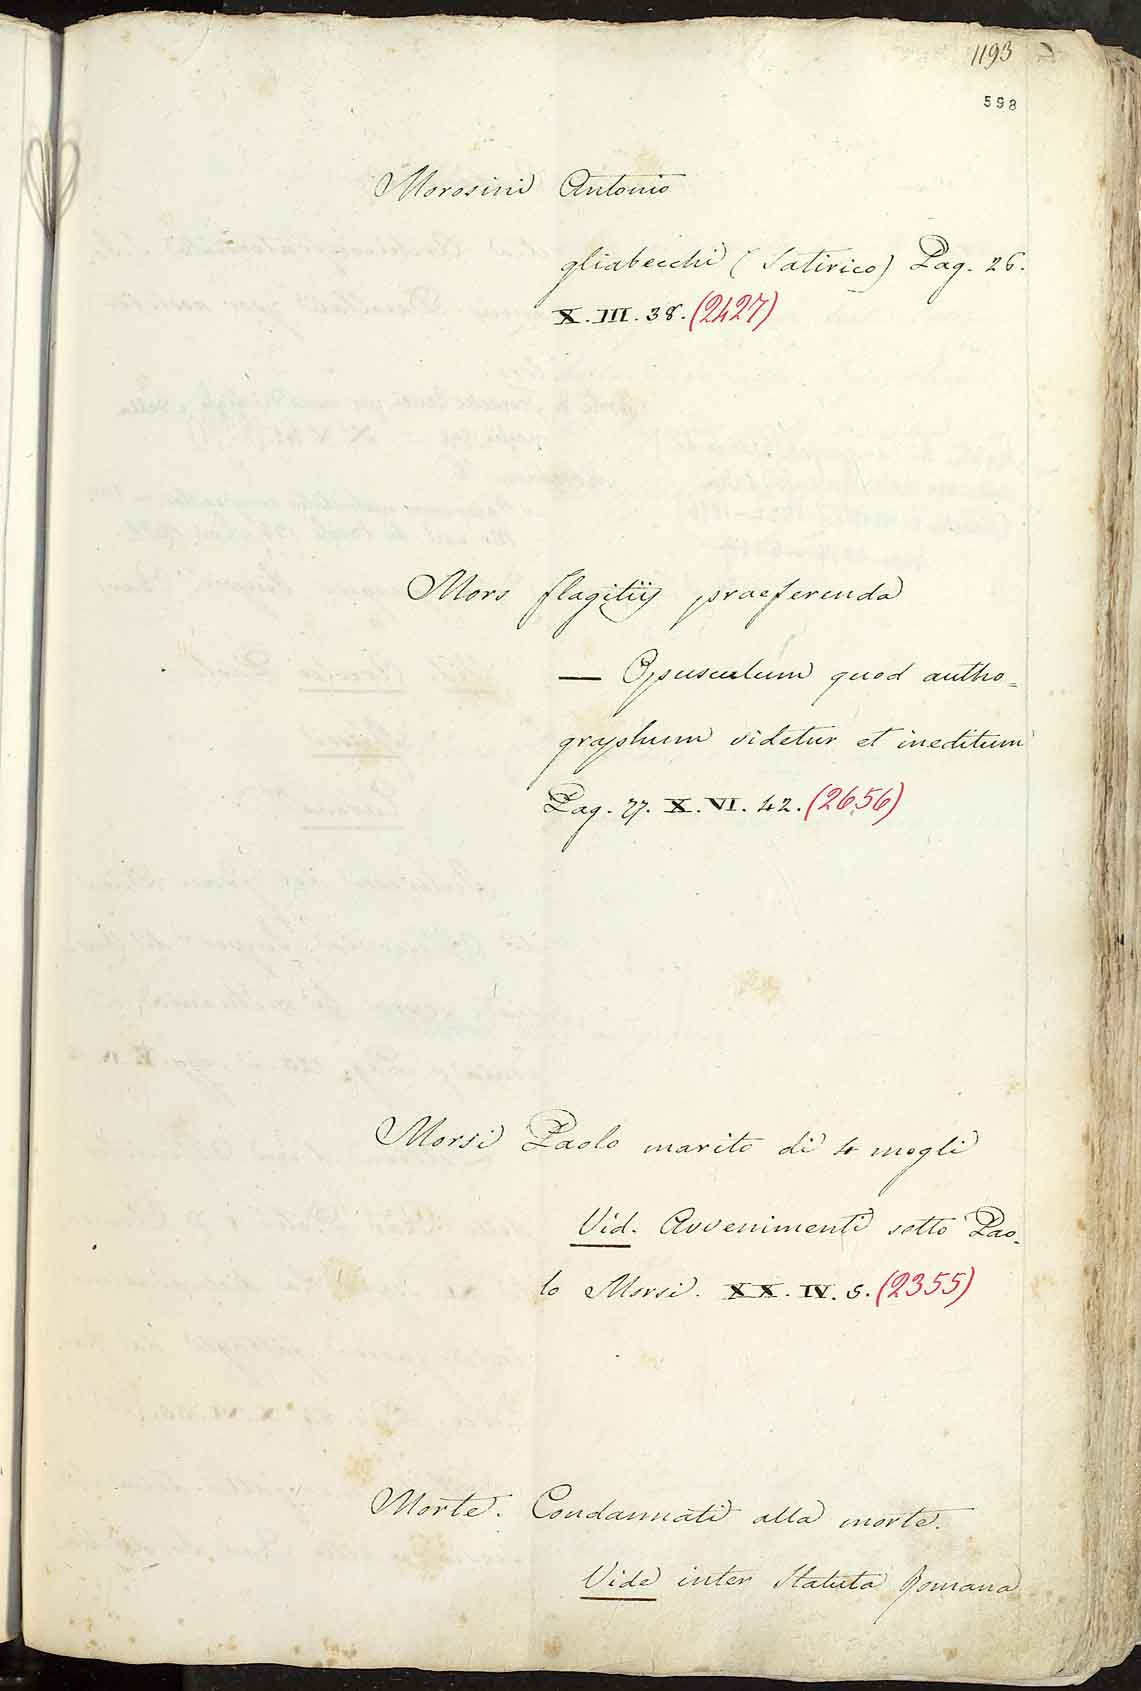 1193
598
Morosini Antonio
gliabecchi (Satirico) Pag. 26.
X. III. 38. (2427)
Mors flagitiis praeferenda
— Opusculum quod autho=
graphum videtur et ineditum
Pag. 77. X. VI. 42. (2656)
Morsi Paolo marito di 4 mogli
Vid. Avvenimenti sotto Pao-
lo Morsi. XX. IV. 5. (2355)
Morte. Condannati alla morte.
Vide inter Statuta Romana